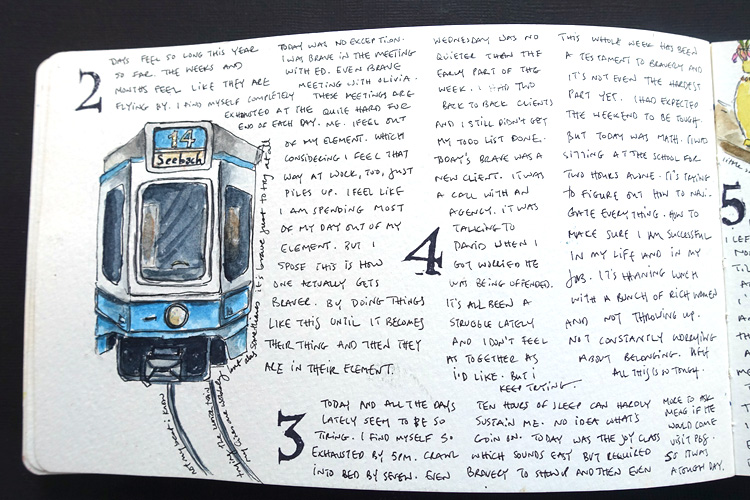 2
DAYS FEEL SO LONG THIS YEAR
SO FAR. THE WEEKS AND
MONTHS FEEL LIKE THEY ARE
FLYING BY. I FIND MYSELF COMPLETELY
EXHAUSTED AT THE
END OF EACH DAY.
TODAY WAS NO EXCEPTION.
I WAS BRAVE IN THE MEETING
WITH ED. EVEN BRAVE
MEETING WITH OLIVIA.
THESE MEETINGS ARE
QUITE HARD FOR
ME. I FEEL OUT
OF MY ELEMENT. WHICH
CONSIDERING I FEEL THAT
WAY AT WORK, TOO, JUST
PILES UP. I FEEL LIKE
I AM SPENDING MOST
OF MY DAY OUT OF MY
ELEMENT. BUT I
SPOSE THIS IS HOW
ONE ACTUALLY GETS
BRAVER. BY DOING THINGS
LIKE THIS UNTIL IT BECOMES
THEIR THING AND THEN THEY
ARE IN THEIR ELEMENT.
14
Seebach
but day sometimes it's brave just to try at all
not my best i know
3
TODAY AND ALL THE DAYS
LATELY SEEM TO BE SO
TIRING. I FIND MYSELF SO
EXHAUSTED BY 5PM. CRAWL
INTO BED BY SEVEN. EVEN
TEN HOURS OF SLEEP CAN HARDLY
SUSTAIN ME. NO IDEA WHAT'S
GOIN ON. TODAY WAS THE JOY CLASS
WHICH SOUNDS EASY BUT REQUIRED
BRAVERY TO SHOW UP AND THEN EVEN
MORE TO ASK
MENG IF HE
WOULD COME
VISIT
SO IT WAS
A TOUGH DAY.
4
WEDNESDAY WAS NO
QUIETER THAN THE
EARLY PART OF THE
WEEK. I HAD TWO
BACK TO BACK CLIENTS
AND I STILL DIDN'T GET
MY TODO LIST DONE.
TODAY'S BRAVE WAS A
NEW CLIENT. IT WAS
A CALL WITH AN
AGENCY. IT WAS
TALKING TO
DAVID WHEN I
GOT WORRIED HE
WAS BEING OFFENDED.
IT'S ALL BEEN A
STRUGGLE LATELY
AND I DON'T FEEL
AS TOGETHER AS
I'D LIKE. BUT I
KEEP TRYING.
THIS WHOLE WEEK HAS BEEN
A TESTAMENT TO BRAVERY AND
IT'S NOT EVEN THE HARDEST
PART YET. I HAD EXPECTED
THE WEEKEND TO BE TOUGH.
BUT TODAY WAS MATH.
SITTING AT THE SCHOOL FOR
TWO HOURS ALONE. IT'S TRYING
TO FIGURE OUT HOW TO NAVI-
GATE EVERYTHING. HOW TO
MAKE SURE I AM SUCCESSFUL
IN MY LIFE AND IN MY
JOB. IT'S HAVING LUNCH
WITH A BUNCH OF RICH WOMEN
AND NOT THROWING UP.
NOT CONSTANTLY WORRYING
ABOUT BELONGING.
ALL THIS IS SO TOUGH.
5
I LEF